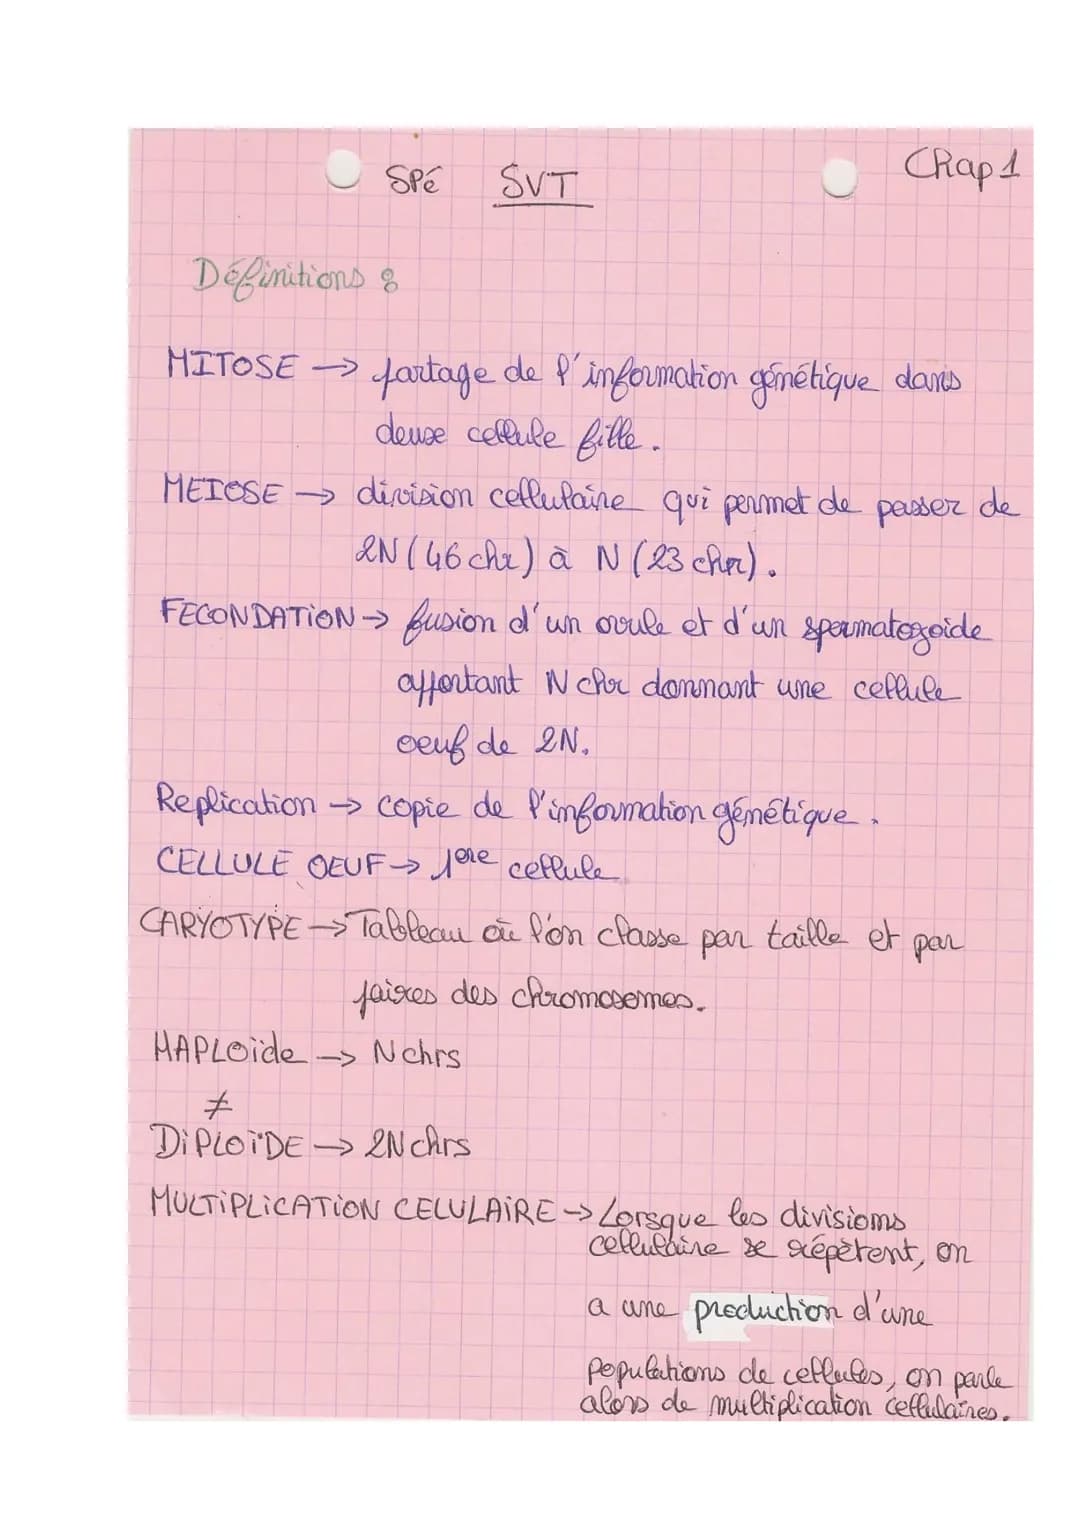 SPé SVT Chap 1
Définitions :
MITOSE → partage de l'information génétique dans
deuxe cellule fille.
MEIOSE → division cellulaire qui permet de passer de
2N (46 chr) à N (23 chr).
FECONDATiON → fusion d'un ovule et d'un spermatozoide
apportant N chr donnant une cellule
oeuf de 2N.
Replication → copie de l'information génétique.
CELLULE OEUF → 1ere cellule
CARYOTYPE → Tableau où l'on classe par taille et par
paires des chromosomes.
HAPLOïde → N chrs
≠
DiPLOïDE → 2N chrs
MULTiPLiCATiON CELULAiRE → Lorsque les divisions
cellulaire se répètent, on
a une production d'une
populations de cellules, on parle
alors de multiplication cellulaires.